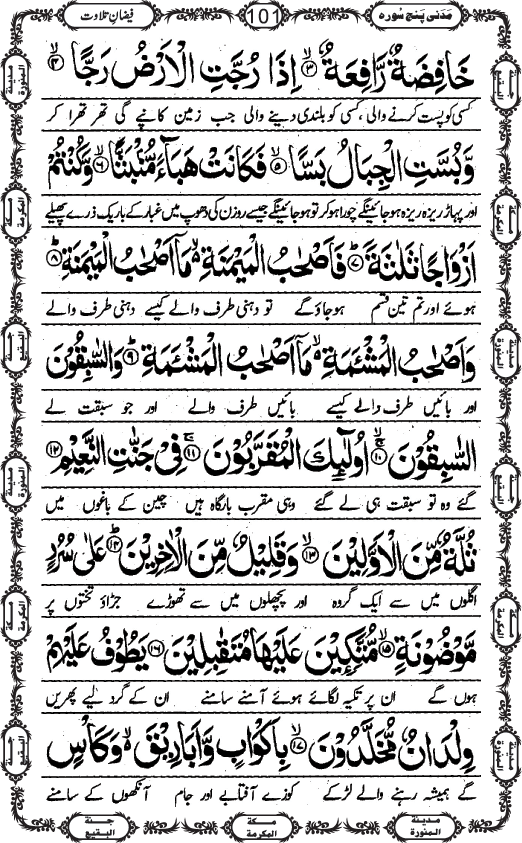 مَدَنی پنج سُورہ
101
فیضانِ تلاوت
خَافِضَةٌ رَّافِعَةٌ ۙ﴿۳﴾ اِذَا رُجَّتِ الْاَرْضُ رَجًّا ۙ﴿۴﴾
کسی کو پست کرنے والی ،کسی کو بلندی دینے والی جب زمین کانپے گی تھر تھرا کر
وَّ بُسَّتِ الْجِبَالُ بَسًّا ۙ﴿۵﴾ فَكَانَتْ هَبَآءً مُّنْۢبَثًّا ۙ﴿۶﴾ وَّ كُنْتُمْ
اور پہاڑ ریزہ ریزہ ہو جائینگے چورا ہو کر تو ہو جائینگے جیسے روزن کی دھوپ میں غبار کے باریک ذرے پھیلے
اَزْوَاجًا ثَلٰثَةً ؕ﴿۷﴾ فَاَصْحٰبُ الْمَيْمَنَةِ ۙ۬ مَاۤ اَصْحٰبُ الْمَيْمَنَةِ ؕ﴿۸﴾
ہوئے اور تم تین قسم ہو جاؤ گے تو دہنی طرف والے کیسے دہنی طرف والے
وَ اَصْحٰبُ الْمَشْـَٔمَةِ ۙ۬ مَاۤ اَصْحٰبُ الْمَشْـَٔمَةِ ؕ﴿۹﴾ وَ السّٰبِقُوْنَ
اور بائیں طرف والے کیسے بائیں طرف والے اور جو سبقت لے
السّٰبِقُوْنَ ﴿۱۰﴾ۙۚ اُولٰٓىِٕكَ الْمُقَرَّبُوْنَ ﴿۱۱﴾ۚ فِيْ جَنّٰتِ النَّعِيْمِ ﴿۱۲﴾
گئے وہ تو سبقت ہی لے گئے وہی مقرب بارگاہ ہیں چین کے باغوں میں
ثُلَّةٌ مِّنَ الْاَوَّلِيْنَ ۙ﴿۱۳﴾ وَ قَلِيْلٌ مِّنَ الْاٰخِرِيْنَ ؕ﴿۱۴﴾ عَلٰى سُرُرٍ
اگلوں میں سے ایک گروہ اور پچھلوں میں سے تھوڑے جڑاؤ تختوں پر
مَّوْضُوْنَةٍ ۙ﴿۱۵﴾ مُّتَّكِـِٕيْنَ عَلَيْهَا مُتَقٰبِلِيْنَ ﴿۱۶﴾ يَطُوْفُ عَلَيْهِمْ
ہوں گے ان پر تکیہ لگائے ہوئے آمنے سامنے ان کے گرد لیے پھریں
وِلْدَانٌ مُّخَلَّدُوْنَ ۙ﴿۱۷﴾ بِاَكْوَابٍ وَّ اَبَارِيْقَ ۙ۬ وَ كَاْسٍ
گے ہمیشہ رہنے والے لڑکے کوزے آفتابے اور جام آنکھوں کے سامنے
مدینة المنورة
مكة المكرمة
جنة البقیع